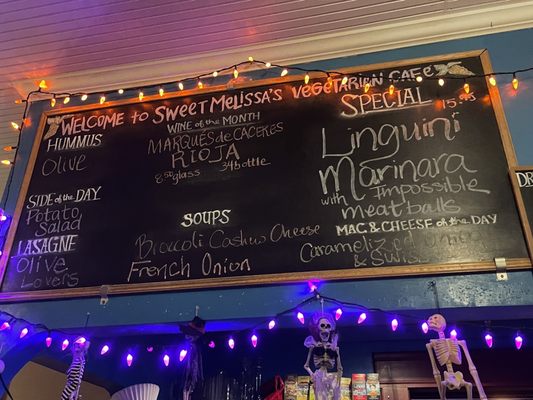 WELCOME TO SWEET MELISSA'S VEGETARIAN CAFE
HUMMUS
Olive
SIDE of the DAY
Potato
Salad
LASAGNE
Olive
Lovers
WINE of the MONTH
MARQUÉS de CACERES
RIOJA
8.50 glass 34 bottle
SOUPS
Broccoli Cashew Cheese
French Onion
SPECIAL
15.95
Linguini
Marinara
with Impossible
meatballs
MAC & CHEESE of the DAY
Caramelized Onion
& Swiss